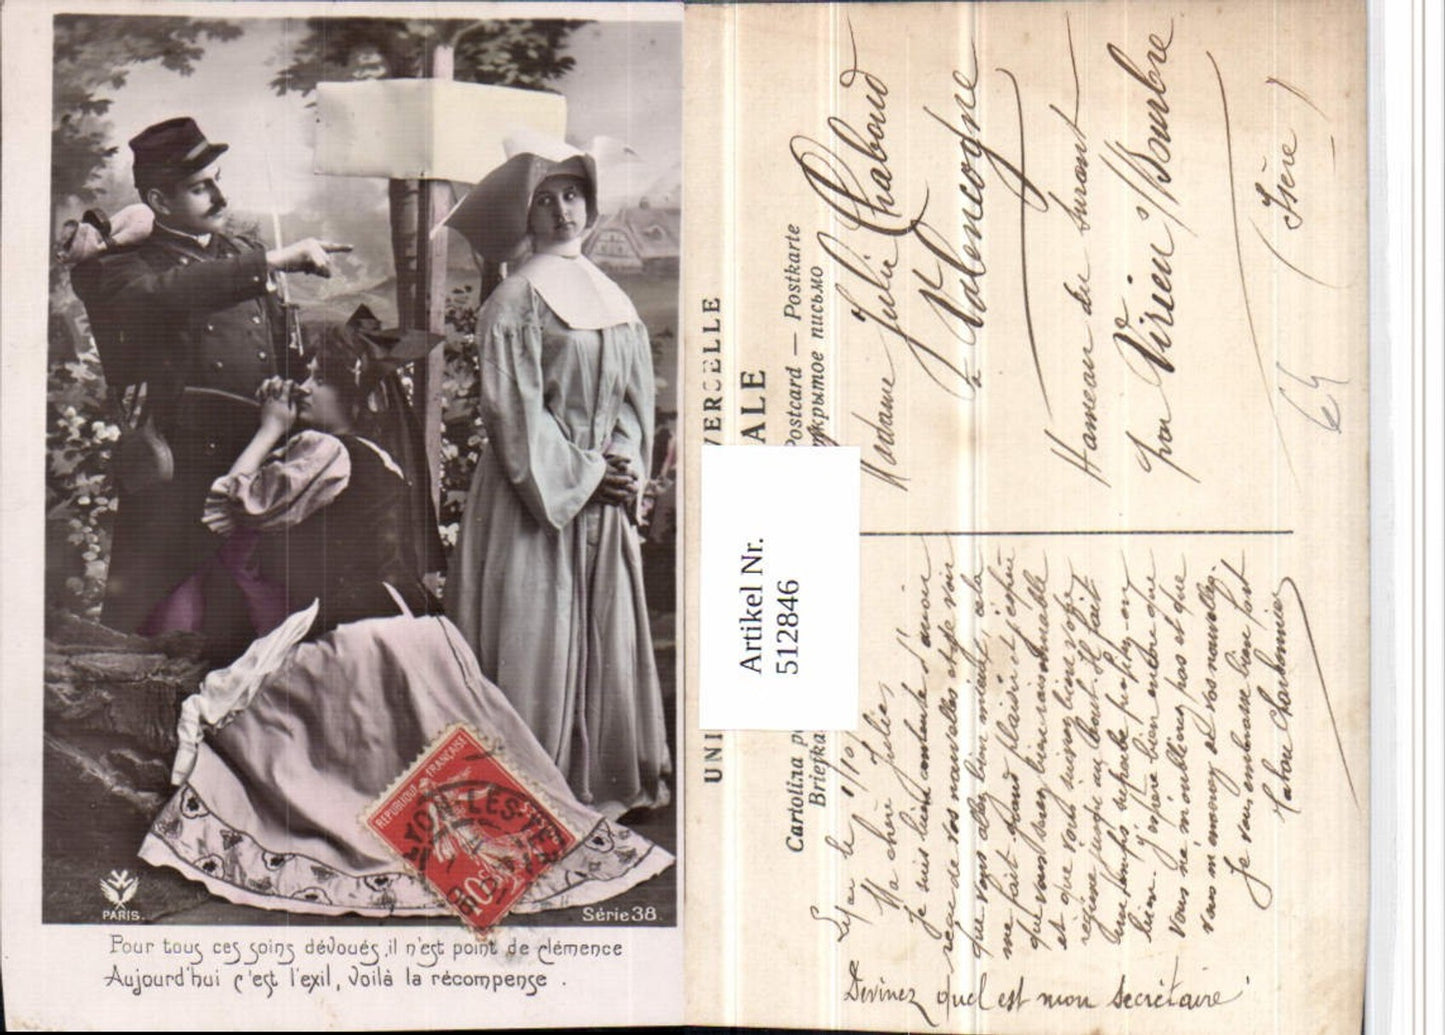 PARIS.
Série 38
Pour tous ces soins dévoués, il n'est point de clémence
Aujourd'hui c'est l'exil, voilà la récompense.
RÉPUBLIQUE FRANÇAISE
10
LYON-LES-TER
UNI VERSELLE
ALE
Postcard — Postkarte
крытое письмо
Cartolina
Briefka
Artikel Nr.
512846
Madame Julie Chaboud
à Valencogne
Hameau du
par Virieu s/Bourbre
(Isère)
le 1/10
Ma chère Julie,
Je suis bien contente d'avoir
reçu de vos nouvelles et de voir
que vous allez bien mieux, cela
me fait grand plaisir et j'espère
que vous serez bien raisonnable
et que vous suivez bien votre
régime jusqu'au bout. Il fait
un temps superbe profitez en
bien. J'espère bien entendu que
vous ne m'oubliez pas et que
vous m'enverrez de vos nouvelles.
Je vous embrasse bien fort
Charbonnier
Devinez quel est mon secrétaire